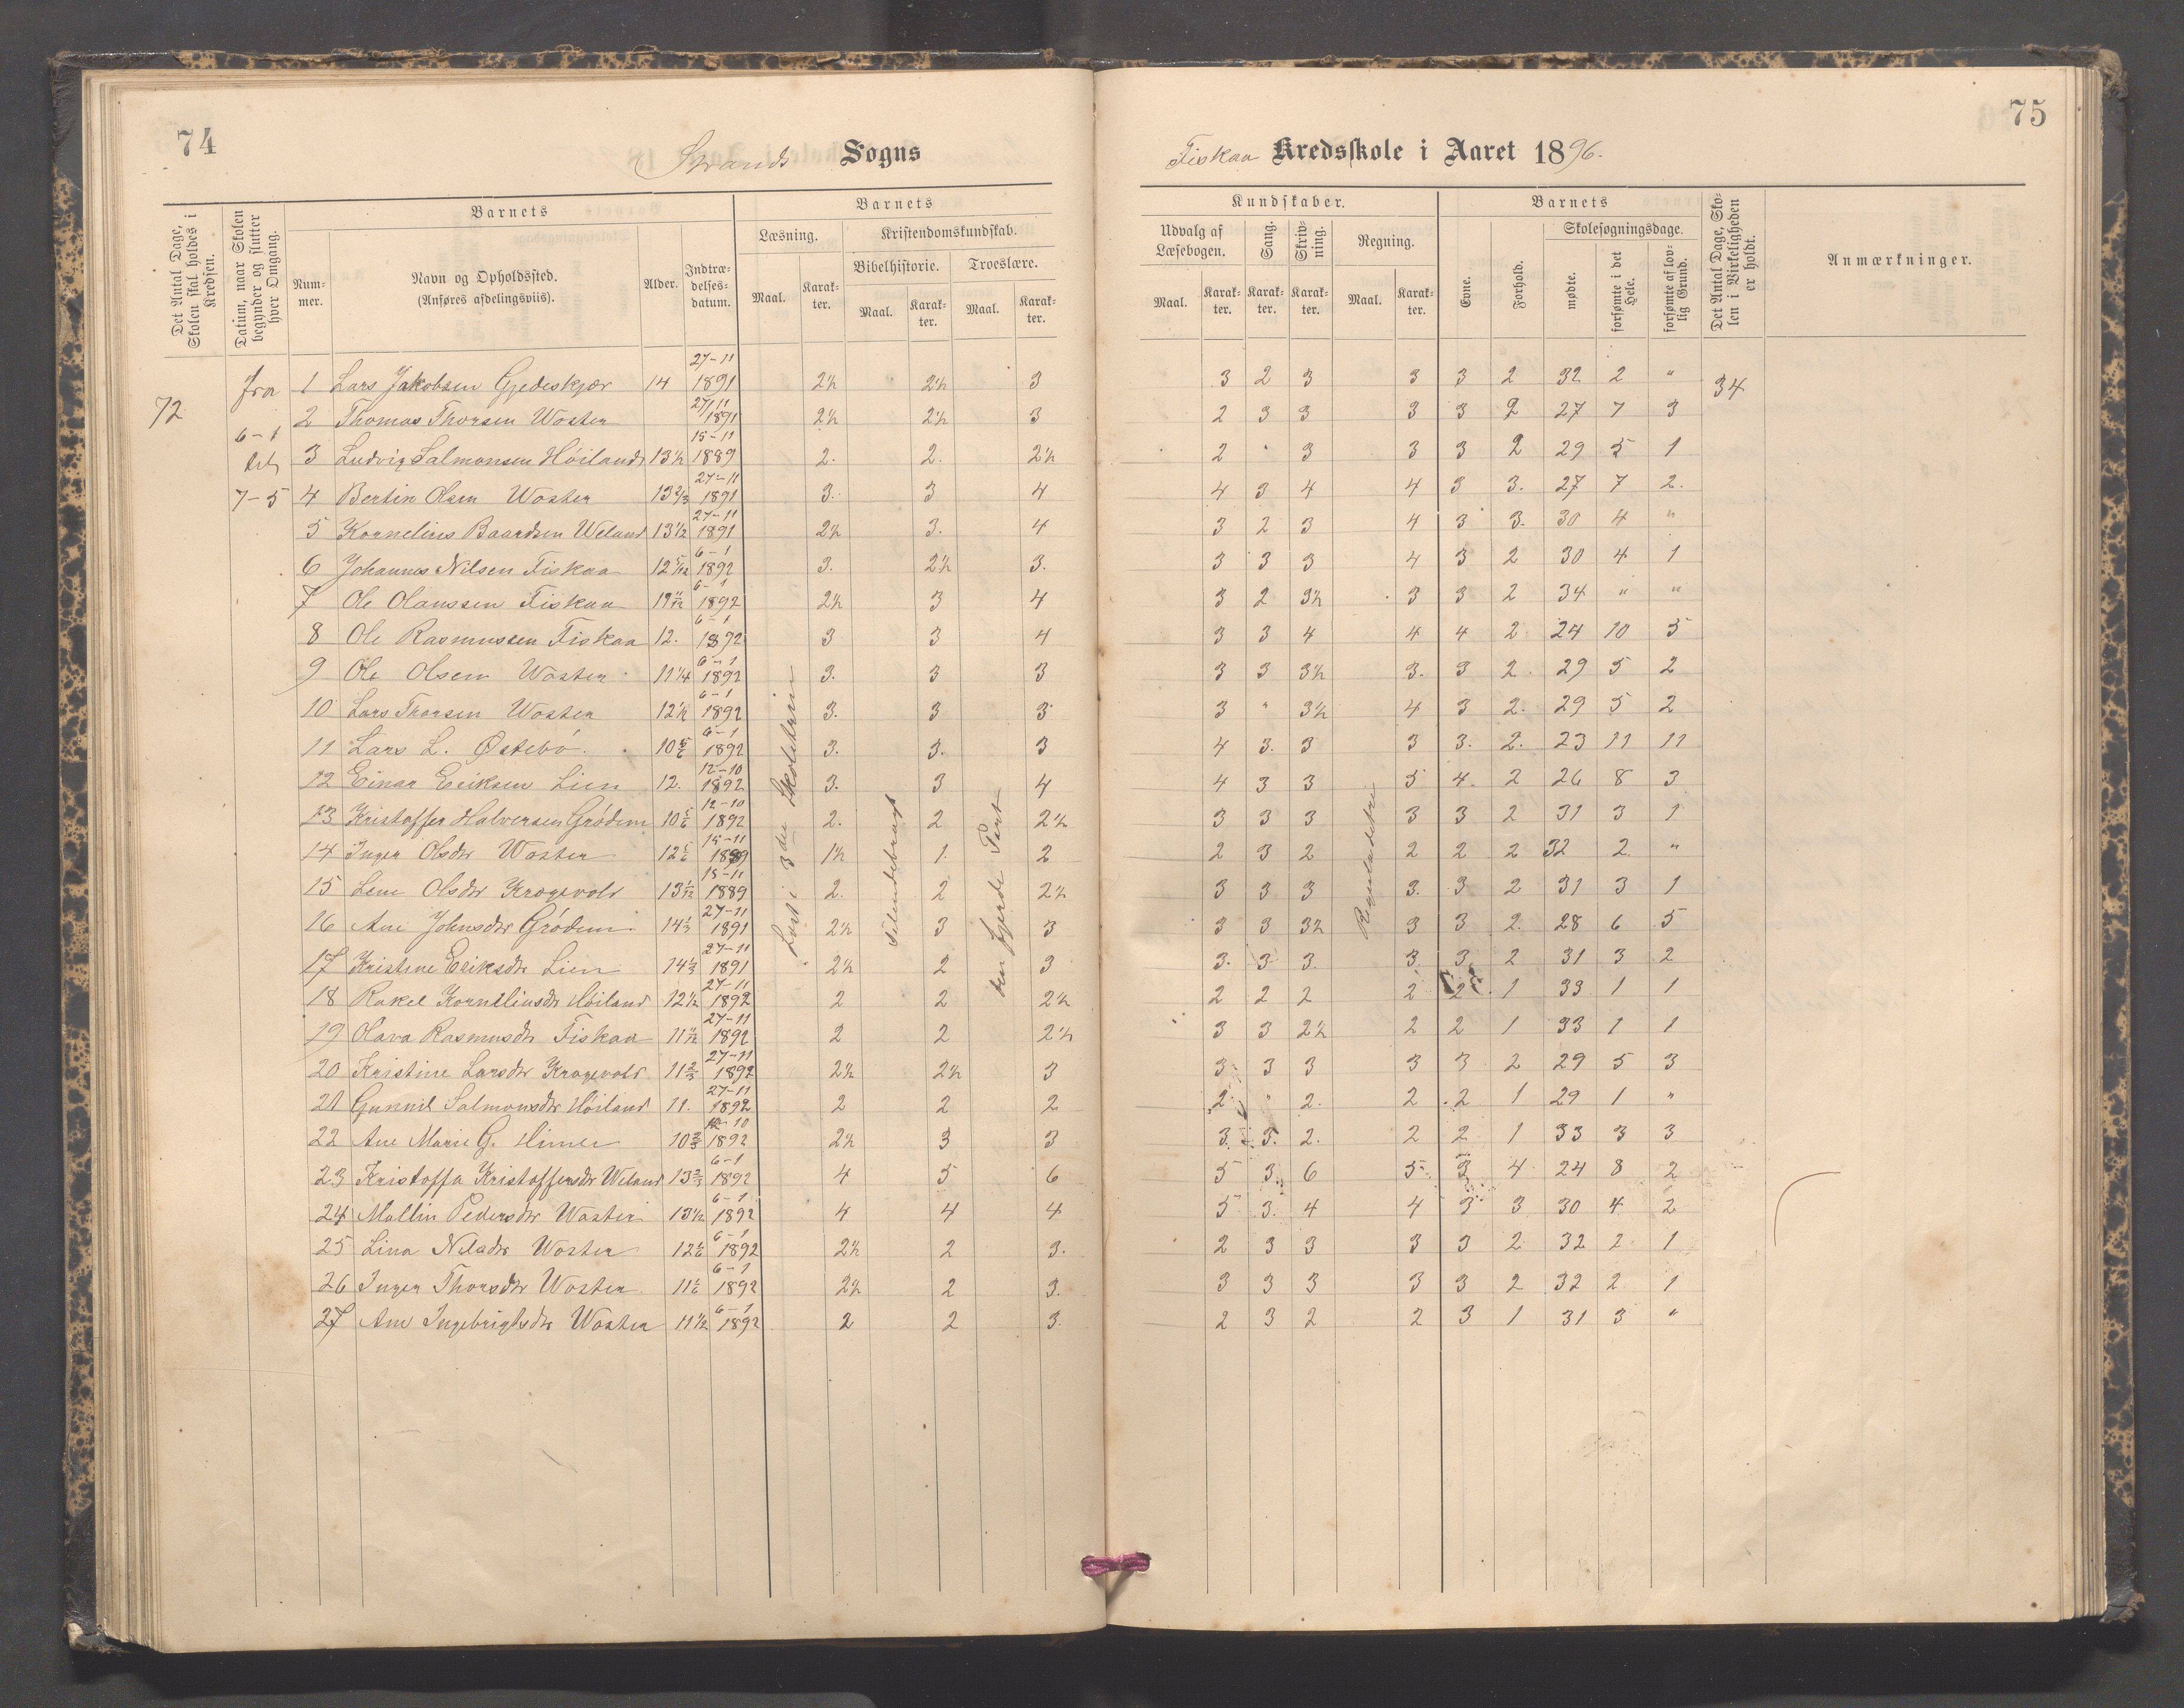 74
Strands Sogns
Det Antal Dage, Skolen skal holdes i Kredsen.
Datum, naar Skolen begynder og slutter hver Omgang.
Barnets
Nummer.
Navn og Opholdssted.
(Anføres afdelingsviis).
Alder.
Indtrædelsesdatum.
Barnets
Læsning.
Kristendomskundskab.
Bibelhistorie. Troeslære.
Maal. Karakter. Maal. Karakter. Maal. Karakter.
72
fra
6-1
til
7-5
1 Lars Jakobsen Gjedeskjær 14 27-11 1891 2½ 2½ 3
2 Thomas Thorsen Woster 27/11 1891 2½ 2½ 3
3 Ludvig Salmonsen Höiland 13½ 15-11 1889 2. 2. 2½
4 Bertin Olsen Woster 13⅔ 27-11 1891 3. 3 4
5 Kornelius Baardsen Weland 13½ 27-11 1891 2½ 3. 4
6 Johannes Nilsen Fiskaa 12 5/12 6-1 1892 3. 2½ 3.
7 Ole Olaussen Fiskaa 6-1 1892 2½ 3 4
8 Ole Rasmussen Fiskaa 12. 6-1 1892 3 3 4
9 Ole Olsen Woster 11¼ 6-1 1892 3. 3 3
10 Lars Thorsen Woster 12½ 6-1 1892 3. 3 3
11 Lars L. Östebö 10 5/6 6-1 1892 3. 3. 3
12 Einar Eeiksen Lien 12. 12-10 1892 3. 3 4
13 Kristoffer Halversen Grödem 10 5/6 12-10 1892 2. 2 2½
14 Inger Olsdtr Woster 15-11 1889 1½ 1. 2
15 Lene Olsdtr Kragevold 13 1/12 15-11 1889 2. 2 2½
16 Ane Johnsdtr Grödem 14⅓ 27-11 1891 2½ 3 3
17 Kristine Eeiksdtr Lien 14⅓ 27-11 1891 2½ 2 3
18 Rakel Korneliusdtr Höiland 12½ 27-11 1892 2 2 2½
19 Olava Rasmusdtr Fiskaa 27-11 1892 2 2 2½
20 Kristine Larsdtr Kragevold 11⅔ 27-11 1892 2½ 2½ 3
21 Gunnil Salmonsdtr Höiland 11. 27-11 1892 2 2 2
22 Ane Marie G. 10⅔ 12-10 1892 2½ 3 3
23 Kristoffa Kristoffersdtr Weland 13⅔ 6-1 1892 4 5 6
24 Mallin Pedersdtr Woster 13½ 6-1 1892 4 4 4
25 Lina Nilsdtr Woster 12 1/6 6-1 1892 2½ 2 3.
26 Inger Thorsdtr Woster 11 1/6 6-1 1892 2½ 2 3.
27 Ane Ingebrigtsdtr Woster 11½ 6-1 1892 2 2 3.
Læst i 3die Skoletrin
den fjerde Part
75
Fiskaa Kredsskole i Aaret 1896.
Kundskaber.
Udvalg af Læsebogen.
Sang.
Skrivning.
Regning.
Maal. Karakter. Karakter. Karakter. Maal. Karakter.
Barnets
Evne.
Forhold.
Skolesøgningsdage.
mødte.
forsømte i det Hele.
forsømte af lovlig Grund.
Det Antal Dage, Skolen i Virkeligheden er holdt.
Anmærkninger.
3 2 3 3 3 2 32 2 " 34
2 3 3 3 3 2 27 7 3
2 " 3 3 3 2 29 5 1
4 3 4 4 3 3. 27 7 2.
3 2 3 4 3 3. 30 4 "
3 3 3 4 3 2 30 4 1
3 2 3½ 3 3 2 34 " "
3 3 4 4 4 2 24 10 5
3 3 3½ 3. 3 2. 29 5 2
3 " 3½ 4 3 2. 29 5 2
4 3. 3 3 3. 2. 23 11 11
4 3 3 5 4. 2 26 8 3
3 3 3 3 3 2 31 3 1
2 3 2 2 2 2 32 2. "
3 3 3 3. 3 2 31 3 1
3 3 3½ 3 3 2. 28 6 5
3. 3 3. 3. 3. 2 31 3 2
2 2 2 2 2 1 33 1 1
3 3 2½ 2 2 1 33 1 1
3 3 3 3 3 2 29 5 3
2 " 2. 2 2 1 29 1 "
3. 3. 2. 2 2 1 33 3 3
5 3. 6 5 3 4 24 8 2
5 3. 4 4 3 3 30 4 2
2 3 3 3 3 2 32 2 1
3 3 3 3 3 2 32 2 1
2 3 2 2 3 1 31 3 "
Reguladetri